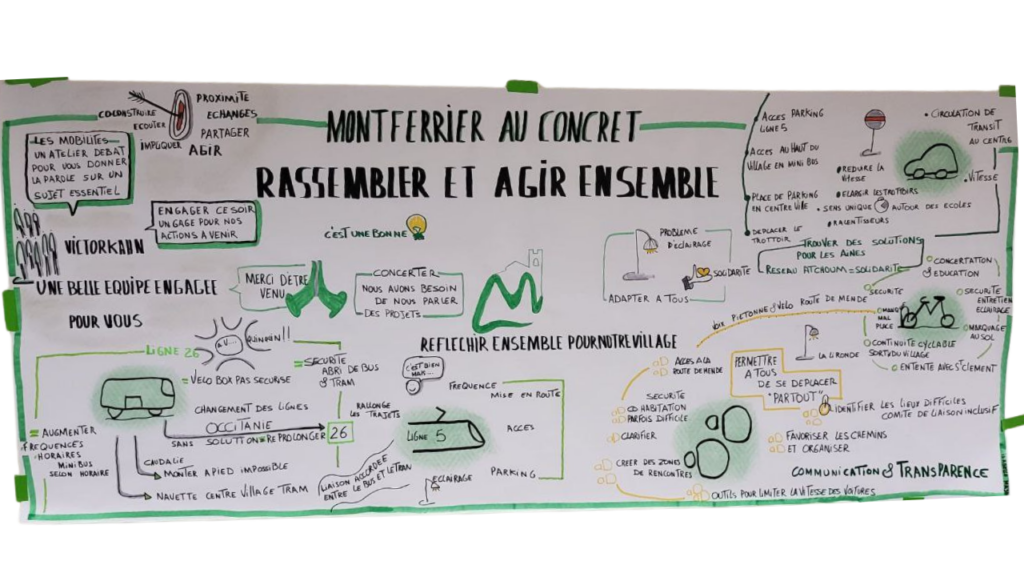 MONTFERRIER AU CONCRET
RASSEMBLER ET AGIR ENSEMBLE
COCONSTRUIRE
ECOUTER
IMPLIQUER
PROXIMITE
ECHANGES
PARTAGER
AGIR
LES MOBILITES
UN ATELIER DEBAT
POUR VOUS DONNER
LA PAROLE SUR UN
SUJET ESSENTIEL
ENGAGER CE SOIR
UN GAGE POUR NOS
ACTIONS A VENIR
VICTOR KAHN
UNE BELLE EQUIPE ENGAGEE
POUR VOUS
MERCI D'ETRE
VENU
C'EST UNE BONNE
CONCERTER
NOUS AVONS BESOIN
DE NOUS PARLER
DES PROJETS
REFLECHIR ENSEMBLE POUR NOTRE VILLAGE
PROBLEME
D'ECLAIRAGE
SOLIDARITE
ADAPTER A TOUS
ACCES PARKING
LIGNE 5
ACCES AU HAUT DU
VILLAGE EN MINI BUS
PLACE DE PARKING
EN CENTRE VILLE
DEPLACER LE
TROTTOIR
CIRCULATION DE
TRANSIT
AU CENTRE
VITESSE
REDUIRE LA
VITESSE
ELARGIR LES TROTTOIRS
SENS UNIQUE AUTOUR DES ECOLES
RALENTISSEURS
TROUVER DES SOLUTIONS
POUR LES AINES
RESEAU ATCHOUM = SOLIDARITE
CONCERTATION
& EDUCATION
SECURITE
SECURITE
ENTRETIEN
ECLAIRAGE
MAL
PLACE
MARQUAGE
AU SOL
CONTINUITE CYCLABLE
SORTI DU VILLAGE
ENTENTE AVEC ST CLEMENT
VOIX PIETONNE & VELO ROUTE DE MENDE
LA LIRONDE
LIGNE 26
= VELO BOX PAS SECURISE
= SECURITE
ABRI DE BUS
& TRAM
CHANGEMENT DES LIGNES
OCCITANIE
SANS SOLUTION = REPROLONGER
26
RALLONGE
LES TRAJETS
= AUGMENTER
FREQUENCES
HORAIRES
MINIBUS
SELON HORAIRE
CAUDALIE
MONTER A PIED IMPOSSIBLE
NAVETTE CENTRE VILLAGE TRAM
LIAISON ACCORDEE
ENTRE LE BUS ET LE TRAM
C'EST BIEN
MAIS...
LIGNE 5
FREQUENCE
MISE EN ROUTE
ACCES
PARKING
ECLAIRAGE
ACCES A LA
ROUTE DE MENDE
SECURITE
COHABITATION
PARFOIS DIFFICILE
CLARIFIER
CREER DES ZONES
DE RENCONTRES
OUTILS POUR LIMITER LA VITESSE DES VOITURES
PERMETTRE
A TOUS
DE SE DEPLACER
"PARTOUT"
IDENTIFIER LES LIEUX DIFFICILES
COMITE DE LIAISON INCLUSIF
FAVORISER LES CHEMINS
ET ORGANISER
COMMUNICATION & TRANSPARENCE